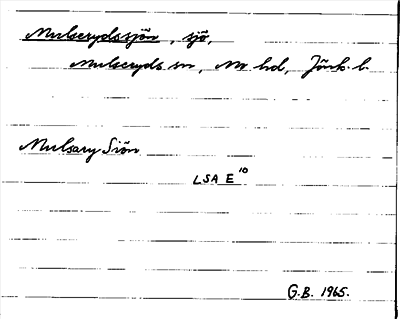 Mulserydssjön, sjö,
Mulseryds sn, Mo hd, Jönk. l.
Mulsary Siön
LSA E 10
G.B. 1965.